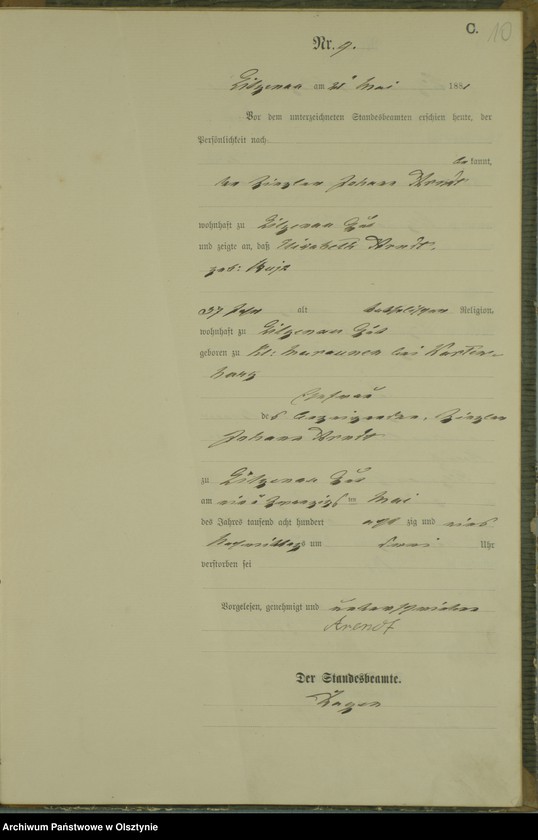 C.
10
Nr. 9.
am 21 Mai 1881
Vor dem unterzeichneten Standesbeamten erschien heute, der
Persönlichkeit nach
bekannt,
der Ziegler Johann Arndt
wohnhaft zu Gut
und zeigte an, daß Elisabeth Arndt,
geb:
37 Jahr alt katholischer Religion,
wohnhaft zu Gut
geboren zu Kl: bei Warten-
burg
Ehefrau
des Anzeigenden, Ziegler
Johann Arndt
zu Gut
am ten Mai
des Jahres tausend acht hundert acht zig und eins
Nachmittags um Uhr
verstorben sei
Vorgelesen, genehmigt und unterschrieben
Arendt
Der Standesbeamte.
Archiwum Państwowe w Olsztynie